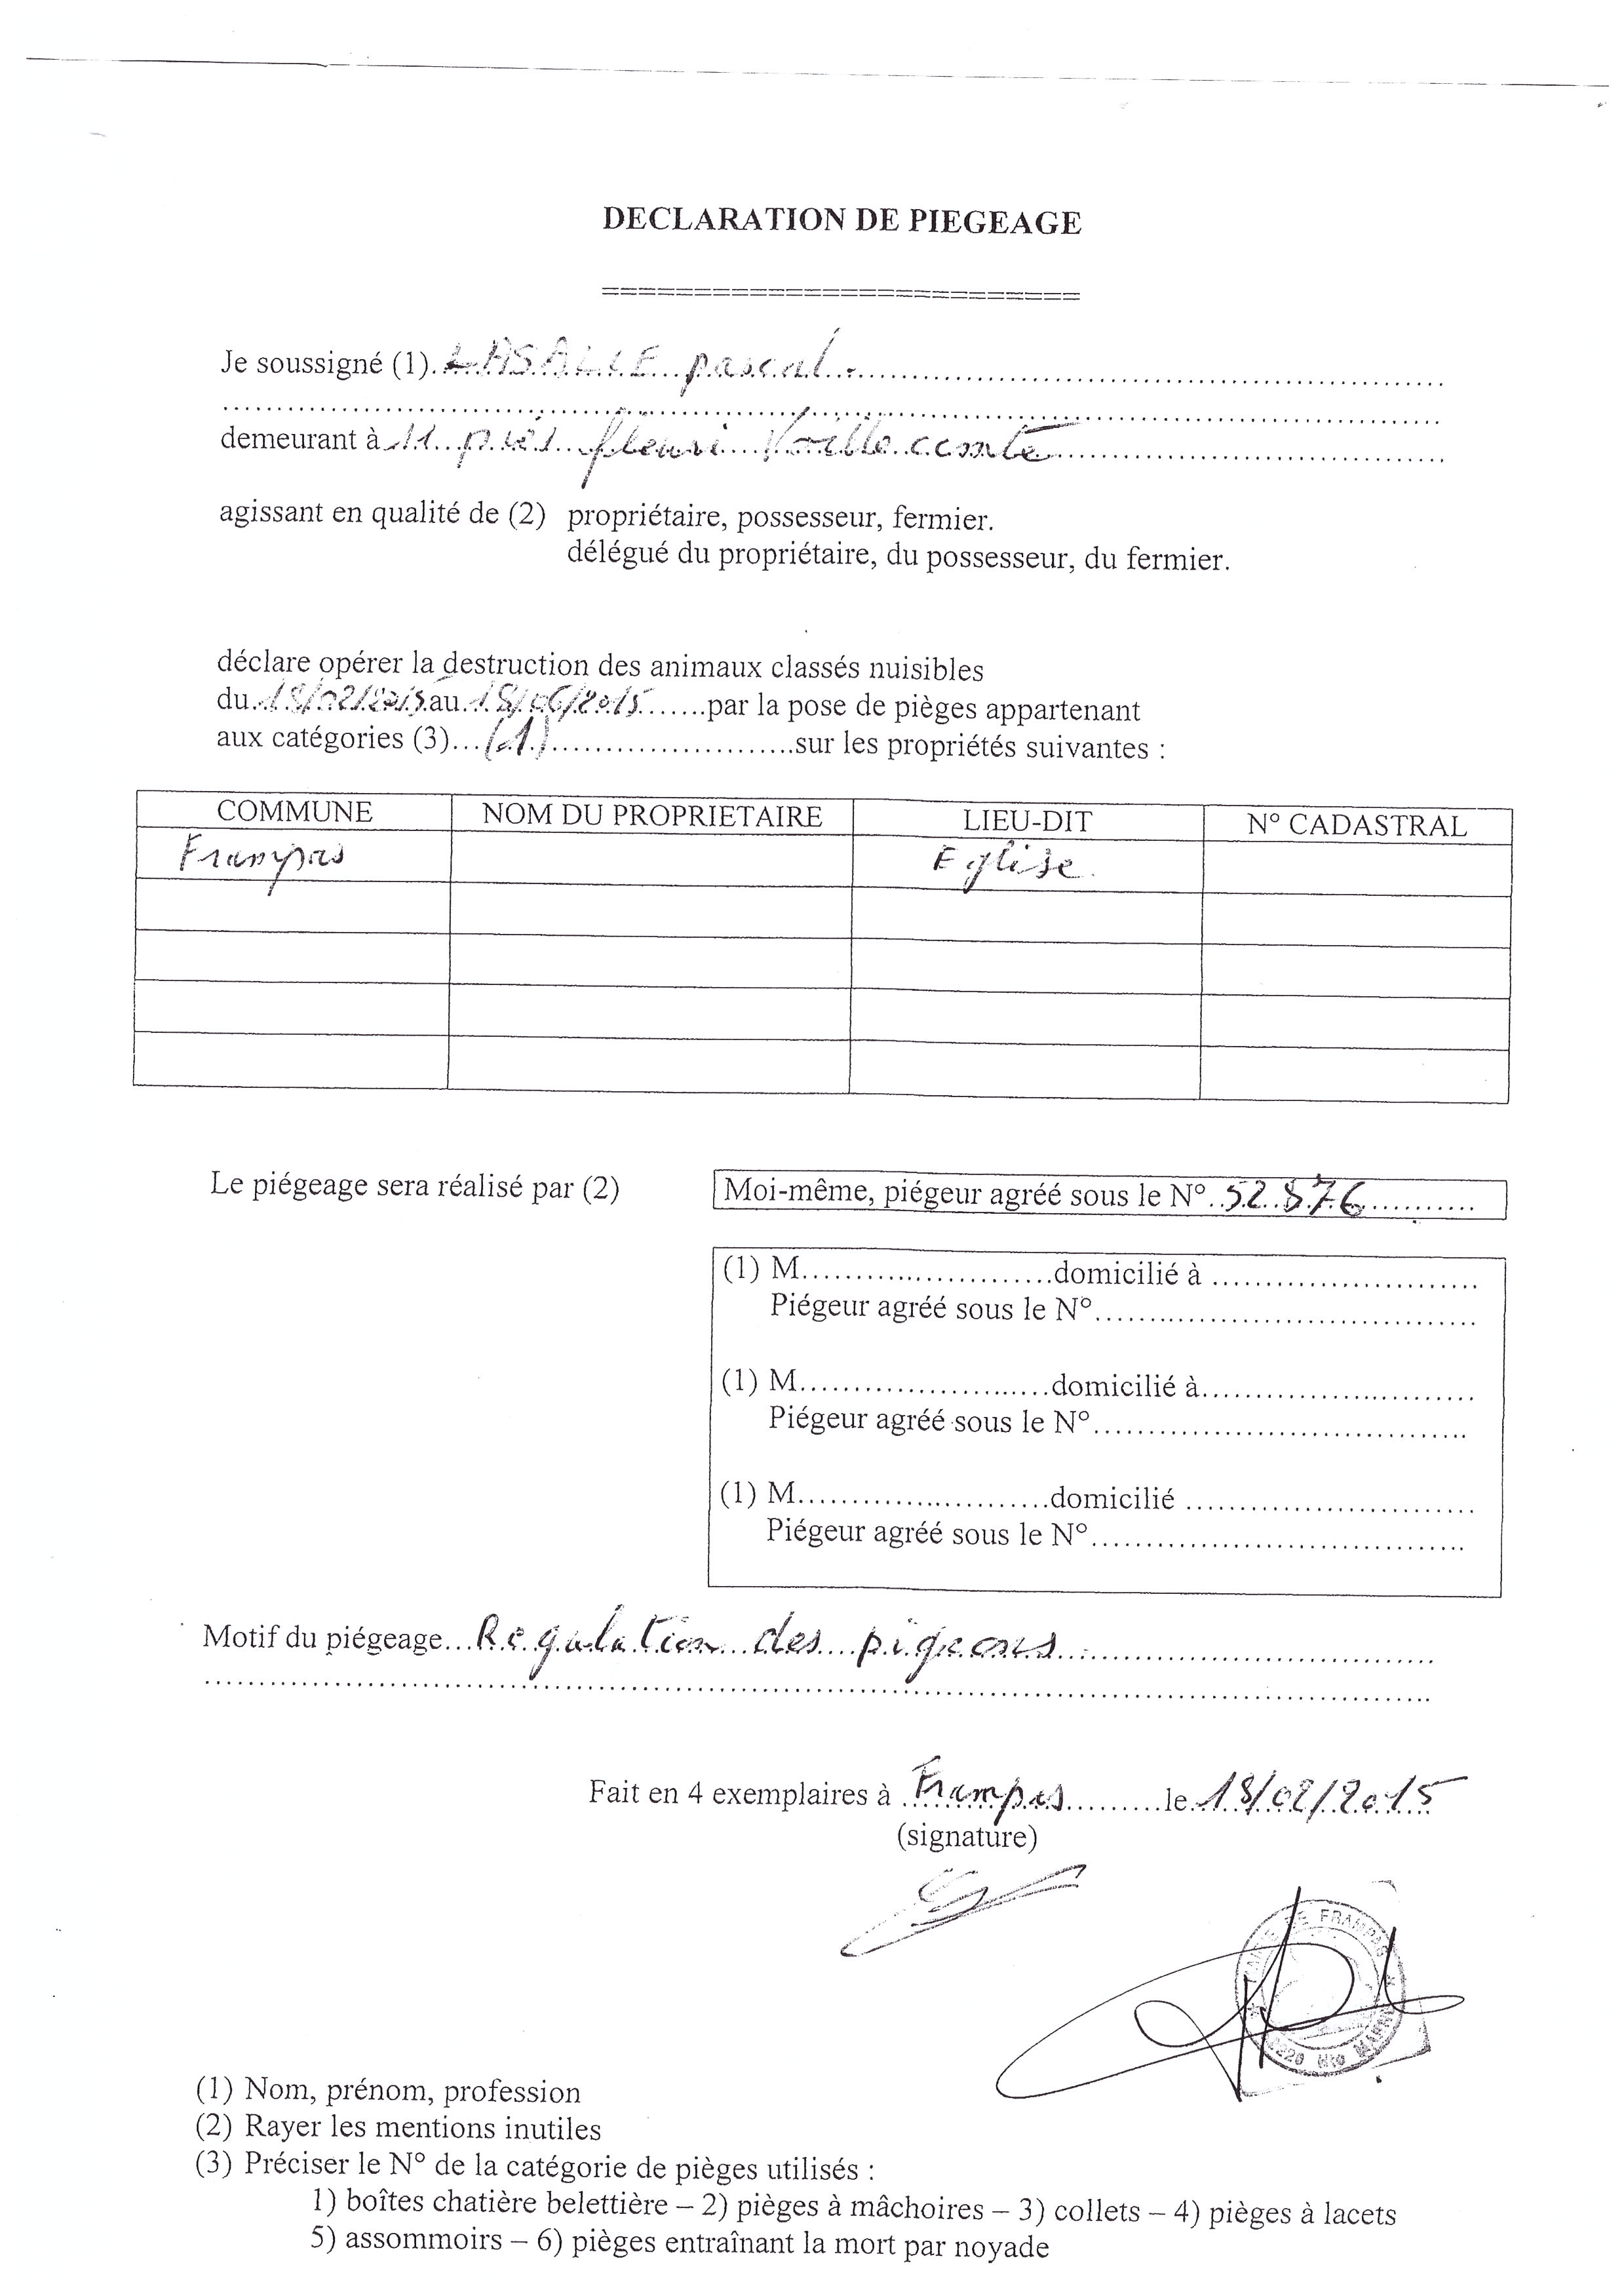 DECLARATION DE PIEGEAGE
==========================
Je soussigné (1). LASALLE pascal
demeurant à 11 prés fleuri Voillecomte
agissant en qualité de (2) propriétaire, possesseur, fermier.
délégué du propriétaire, du possesseur, du fermier.
déclare opérer la destruction des animaux classés nuisibles
du 18/02/2015 au 18/06/2015 par la pose de pièges appartenant
aux catégories (3) (1) sur les propriétés suivantes :
COMMUNE NOM DU PROPRIETAIRE LIEU-DIT N° CADASTRAL
Frampas Eglise
Le piégeage sera réalisé par (2) Moi-même, piégeur agréé sous le N° 52 876
(1) M. domicilié à
Piégeur agréé sous le N°
(1) M. domicilié à
Piégeur agréé sous le N°
(1) M. domicilié
Piégeur agréé sous le N°
Motif du piégeage Regulation des pigeons
Fait en 4 exemplaires à Frampas le 18/02/2015
(signature)
DE FRAMPAS
Hte MARNE
(1) Nom, prénom, profession
(2) Rayer les mentions inutiles
(3) Préciser le N° de la catégorie de pièges utilisés :
1) boîtes chatière belettière – 2) pièges à mâchoires – 3) collets – 4) pièges à lacets
5) assommoirs – 6) pièges entraînant la mort par noyade